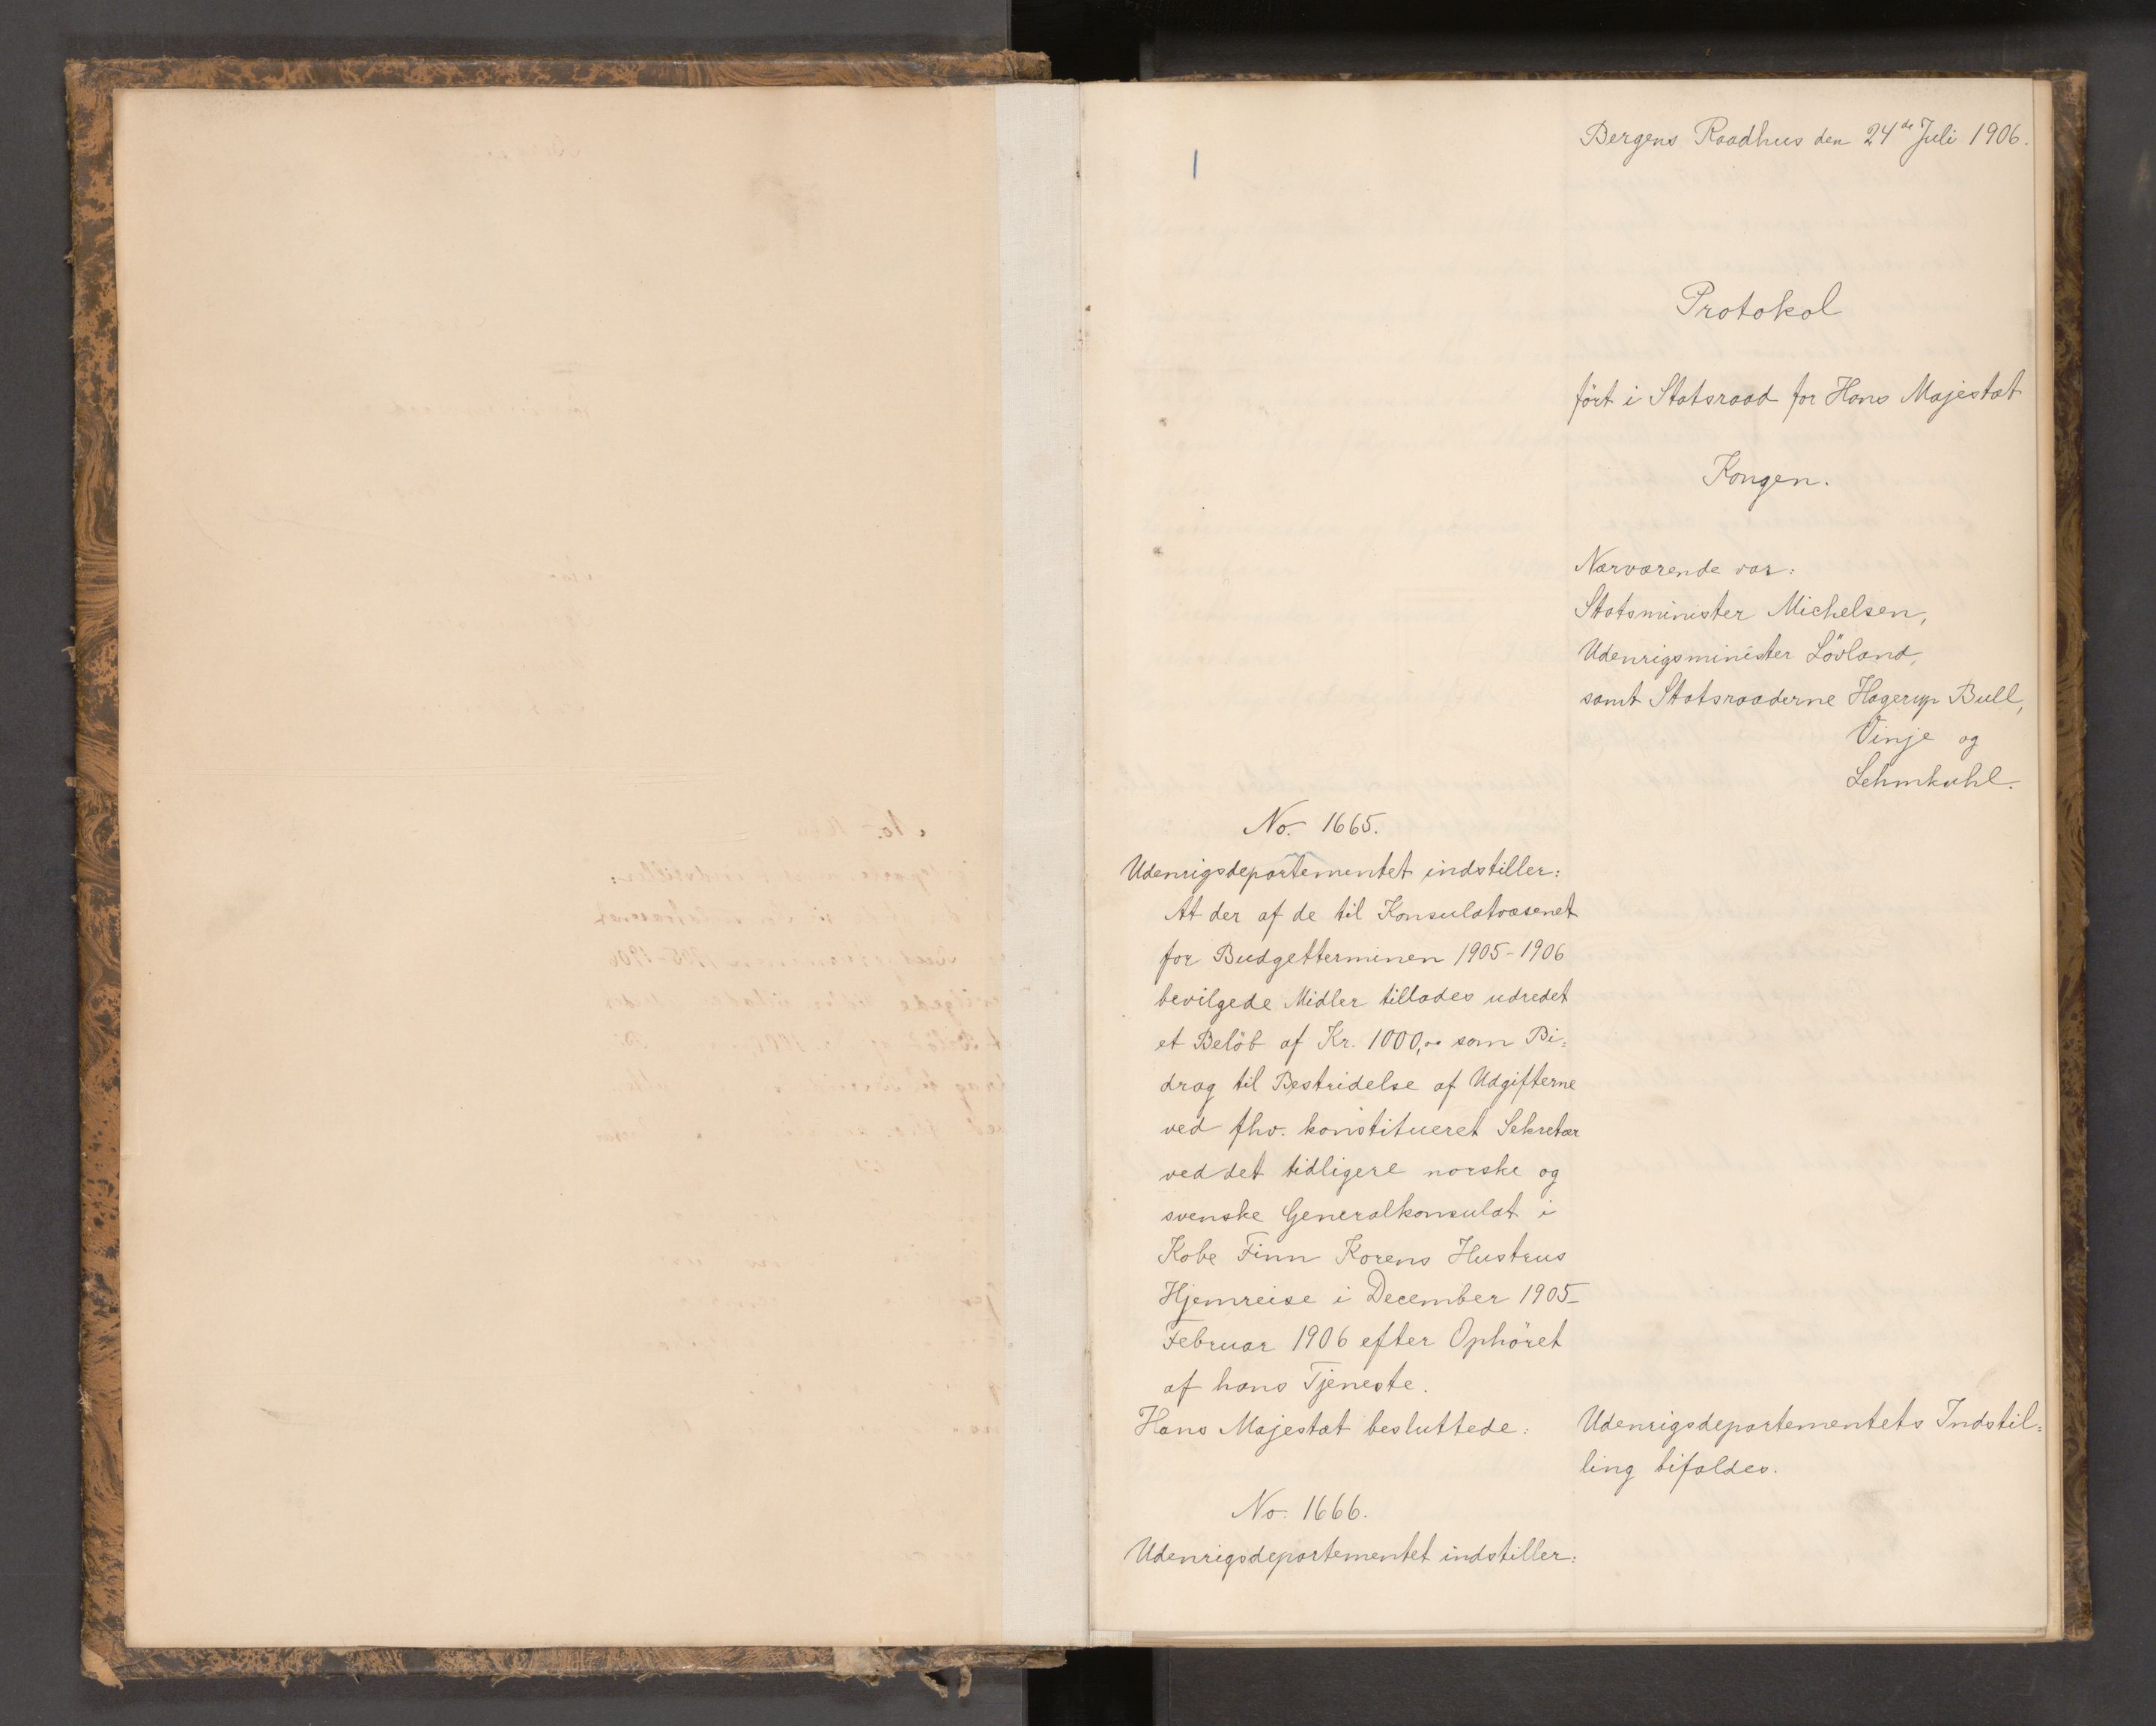 1
Bergens Raadhus den 24de Juli 1906.
Protokol
ført i Statsraad for Hans Majestæt
Kongen.
Nærværende var:
Statsminister Michelsen,
Udenrigsminister Lövland,
samt Statsraaderne Hagerup Bull,
Vinje og
Lehmkuhl.
No. 1665.
Udenrigsdepartementet indstiller:
At der af de til Konsulatvæsenet
for Budgetterminen 1905-1906
bevilgede Midler tillades udredet
et Belöb af Kr. 1000,00 som Bi=
drag til Bestridelse af Udgifterne
ved fhv. konstitueret Sekretær
ved det tidligere norske og
svenske Generalkonsulat i
Kobe Finn Korens Hustrus
Hjemreise i December 1905-
Februar 1906 efter Ophöret
af hans Tjeneste.
Hans Majestæt besluttede:
Udenrigsdepartementets Indstil=
ling bifaldes.
No. 1666.
Udenrigsdepartementet indstiller: